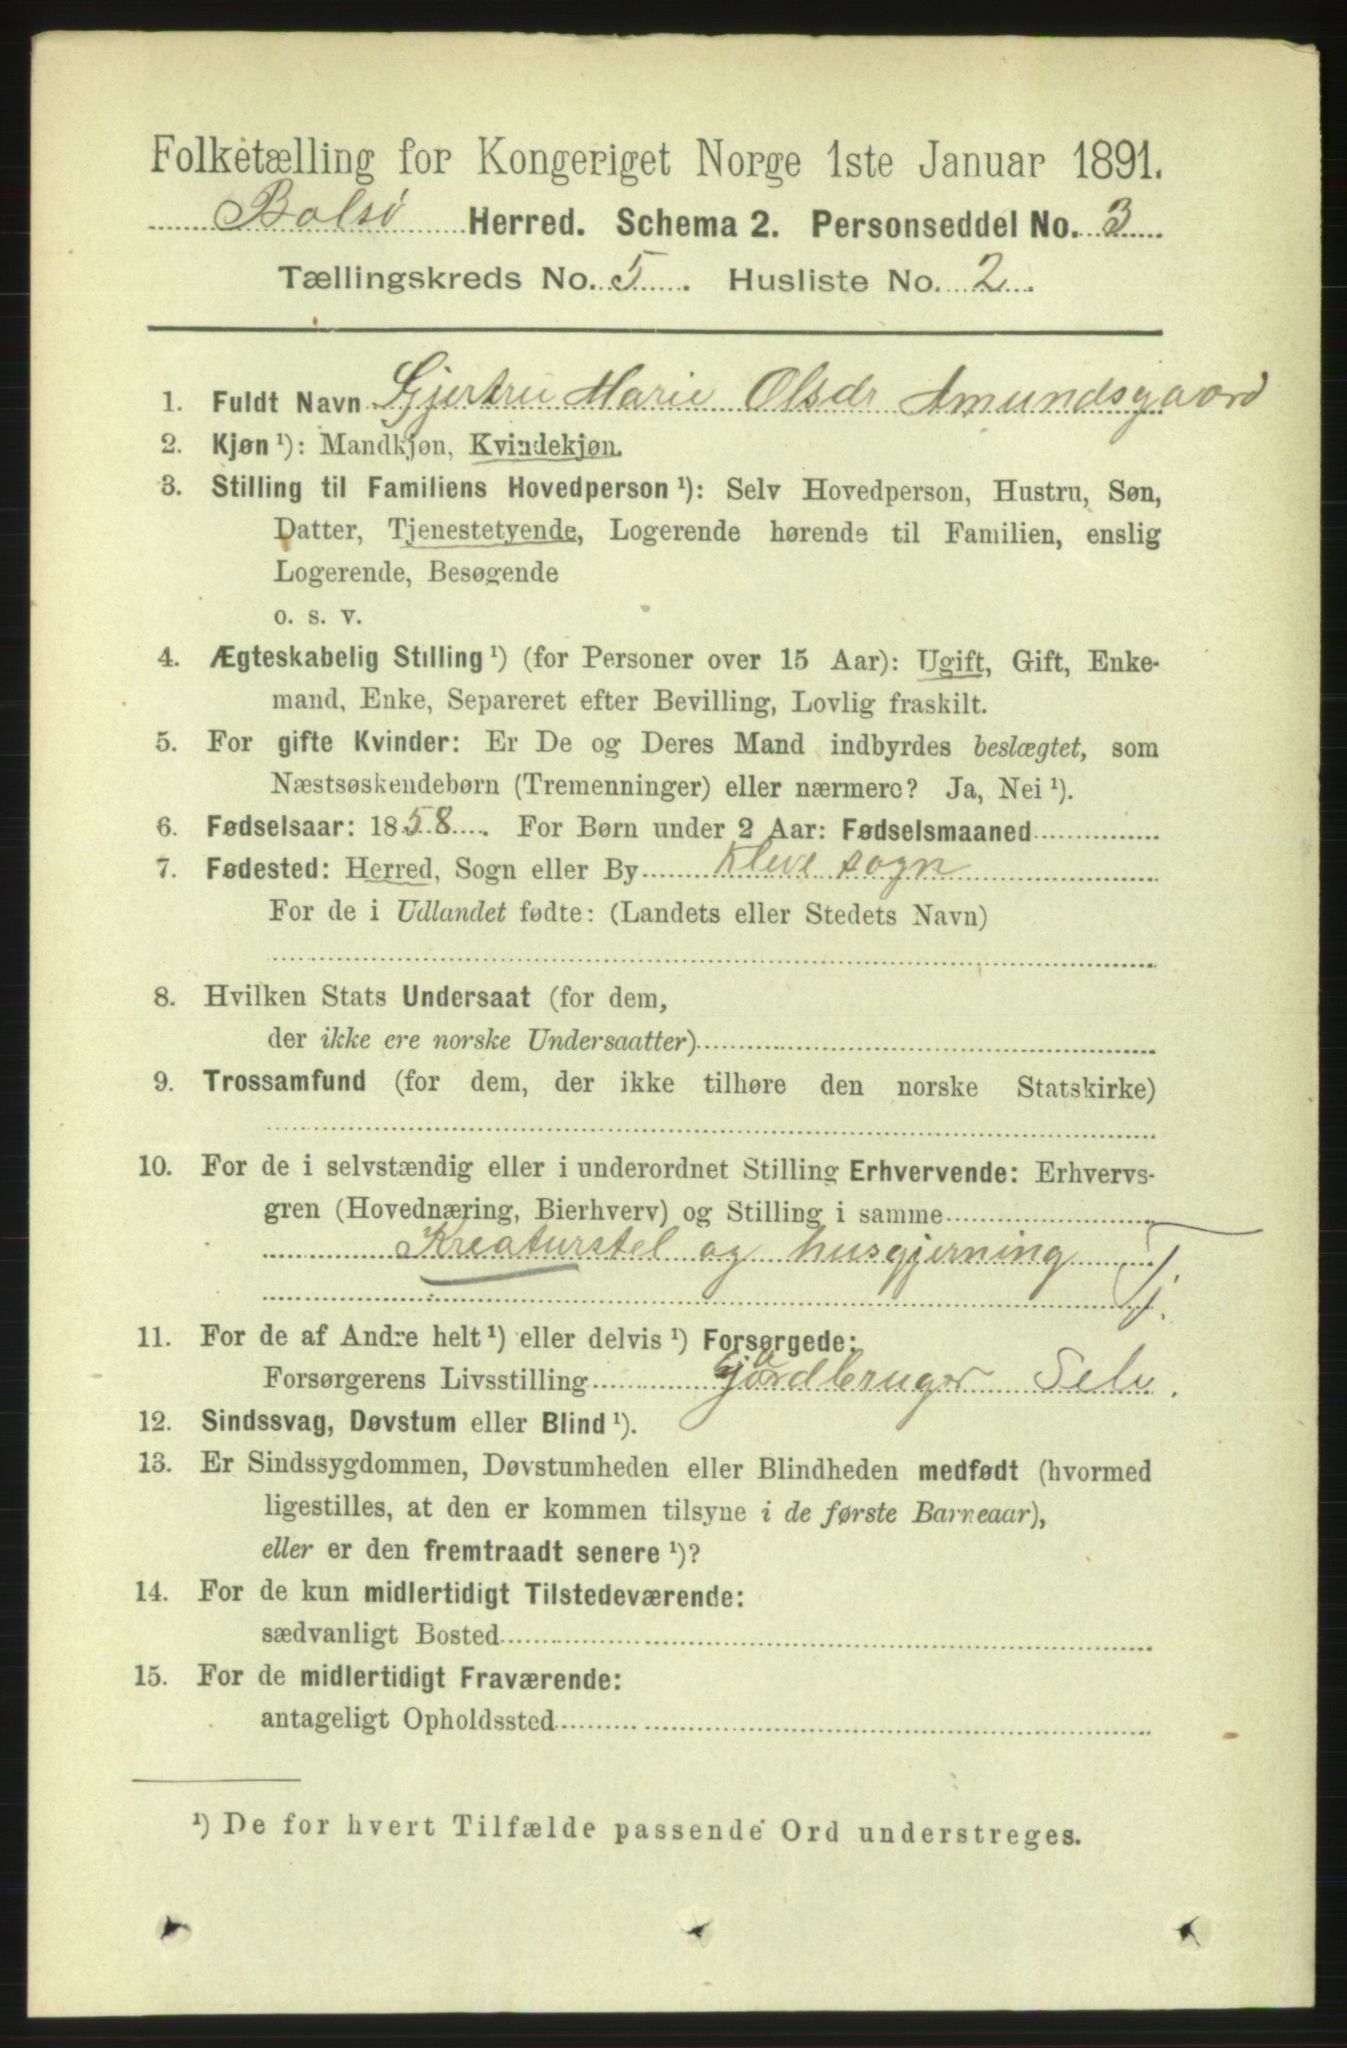 Folketælling for Kongeriget Norge 1ste Januar 1891.
Bolsø Herred. Schema 2. Personseddel No. 3
Tællingskreds No. 5. Husliste No. 2.
1. Fuldt Navn Gjertru Marie Olsdr Amundsgaard
2. Kjøn ¹): Mandkjøn, Kvindekjøn.
3. Stilling til Familiens Hovedperson ¹): Selv Hovedperson, Hustru, Søn,
Datter, Tjenestetyende, Logerende hørende til Familien, enslig
Logerende, Besøgende
o. s. v.
4. Ægteskabelig Stilling ¹) (for Personer over 15 Aar): Ugift, Gift, Enke-
mand, Enke, Separeret efter Bevilling, Lovlig fraskilt.
5. For gifte Kvinder: Er De og Deres Mand indbyrdes beslægtet, som
Næstsøskendebørn (Tremenninger) eller nærmere? Ja, Nei ¹).
6. Fødselsaar: 1858. For Børn under 2 Aar: Fødselsmaaned
7. Fødested: Herred, Sogn eller By Kleve sogn
For de i Udlandet fødte: (Landets eller Stedets Navn)
8. Hvilken Stats Undersaat (for dem,
der ikke ere norske Undersaatter)
9. Trossamfund (for dem, der ikke tilhøre den norske Statskirke)
10. For de i selvstændig eller i underordnet Stilling Erhvervende: Erhvervs-
gren (Hovednæring, Bierhverv) og Stilling i samme
Kreaturstel og husgjerning Tj.
11. For de af Andre helt ¹) eller delvis ¹) Forsørgede:
Forsørgerens Livsstilling Gjordbruger Selv.
12. Sindssvag, Døvstum eller Blind ¹).
13. Er Sindssygdommen, Døvstumheden eller Blindheden medfødt (hvormed
ligestilles, at den er kommen tilsyne i de første Barneaar),
eller er den fremtraadt senere ¹)?
14. For de kun midlertidigt Tilstedeværende:
sædvanligt Bosted
15. For de midlertidigt Fraværende:
antageligt Opholdssted
¹) De for hvert Tilfælde passende Ord understreges.